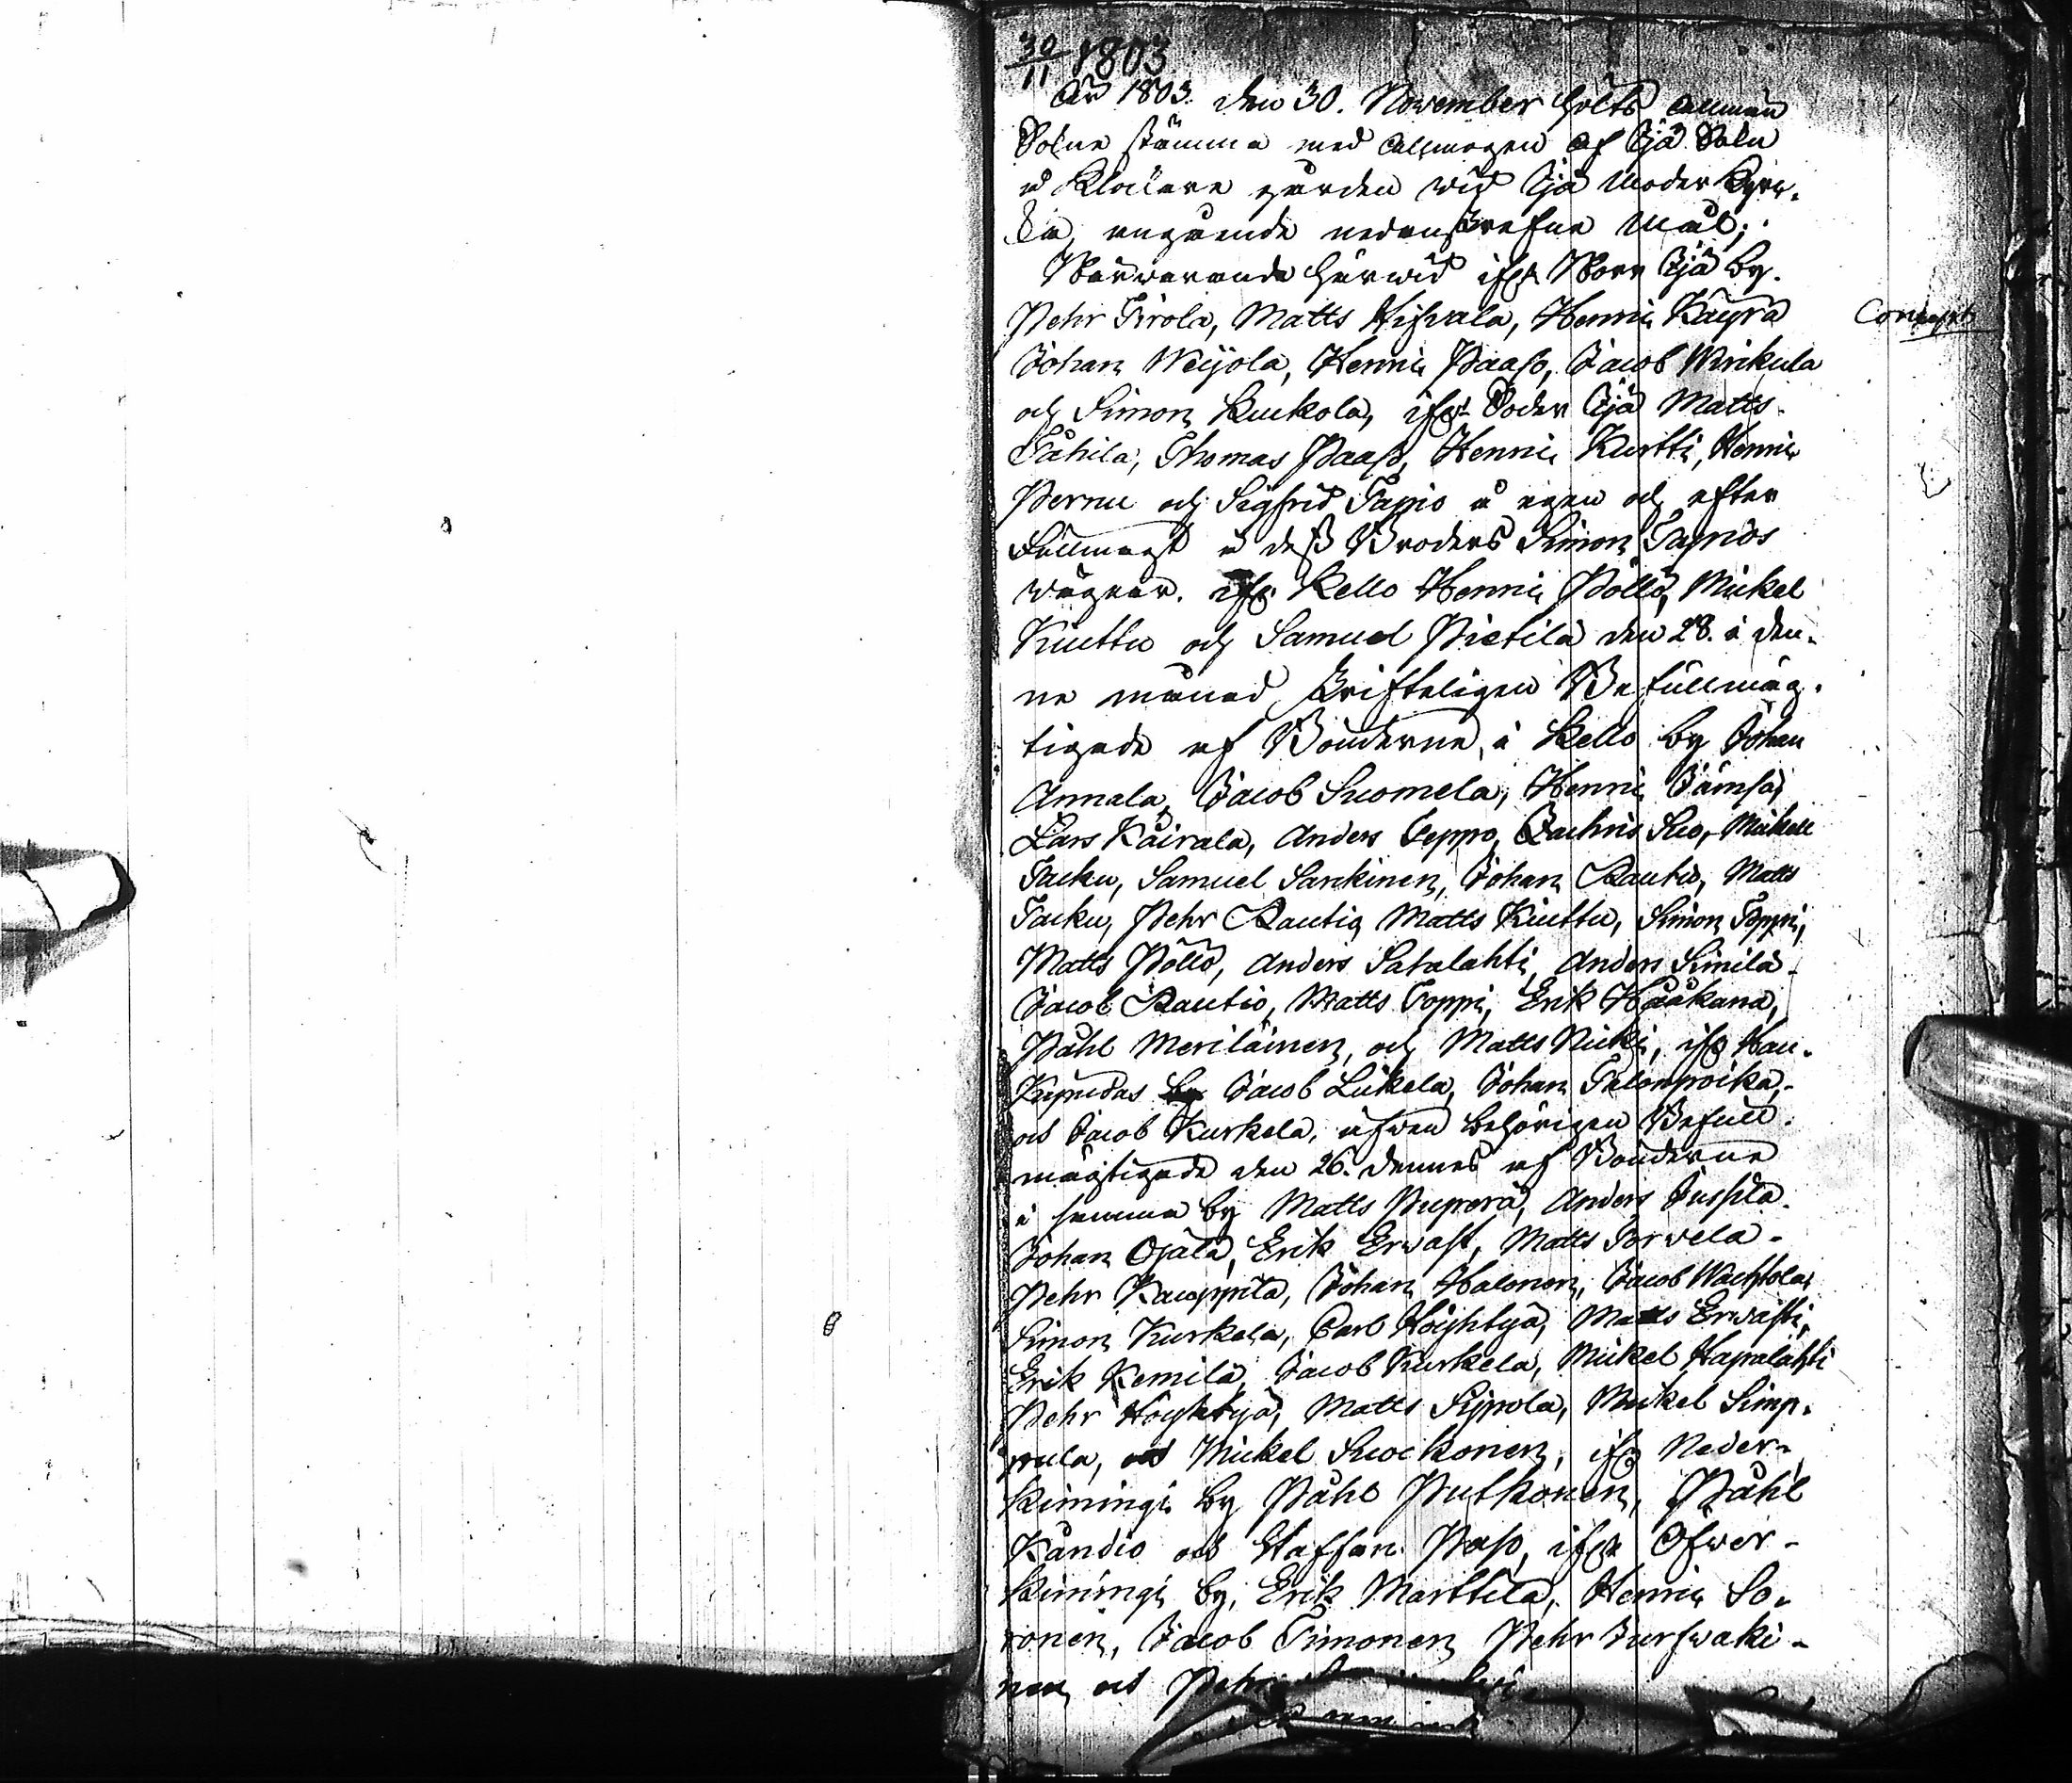 30/11 1803
År 1803. den 30. November hölts allmän
Sokne stämma med allmogen af Ijo Sokn
i Klockare gården wid Ijo Moder Kyrc-
ka, angående nedanskrefne mål;
Närwarande härwid ifrå Norr Ijo by.
Pehr Tirola, Matts Hiswala, Henric Käyrä
Johan Weijola, Henric Paaso, Jacob Wirikula
och Simon Kuckola, ifrå Söder Ijo Matts
Tåhila, Thomas Paaso, Henric Kurtti, Henric
Pernu och Sigfrid Tapio å egen och efter
Fullmagt å dess Broders Simon Tapios
wägnar. ifrå Kello Henric Pöllö, Mickel
Kiuttu och Samuel Pietilä den 28. i den-
ne månad skrifteligen Befullmäg-
tigade af Bönderne, i Kello by Johan
Annala, Jacob Suomela, Henric Jämsä,
Lars Kåirala, Anders Seppo, Zachris Suo, Mickell
Tacku, Samuel Sankinen, Johan Rautio, Matts
Tacku, Pehr Rautio, Matts Kiuttu, Simon Toppi,
Matts Pöllö, Anders Satalahti, Anders Similä
Jacob Rautio, Matts Toppi, Erik Hååkana,
Påhl Meriläinen, och Matts Nicki, ifrå Hau-
Kipudas by Jacob Liikela, Johan Talonpoika,
och Jacob Kurkela, äfwen behörigen Befull-
mägtigade den 26. dennes af Bönderne
i samma by Matts Puperä, Anders Jussila
Johan Ojala, Erik Erwast, Matts Torvela
Pehr Kauppila, Johan Halonen, Jacob Wachtola,
Simon Kurkela, Carl Höyhtyä, Matts Erwasti,
Erik Kemilä, Jacob Kurkela, Mickel Hapalahti
Pehr Höyhtyä, Matts Sipola, Mickel Simp-
pula, och Mickel Suockonen, ifrå Neder-
Kimingi by Påhl Putkonen, Påhl
Kåndio och Staffan Paso, ifrå Öfwer-
Kimingi by, Erik Marttila, Henric So-
ronen, Jacob Timonen Pehr Jurwaki-
nen och Pehr
Concept